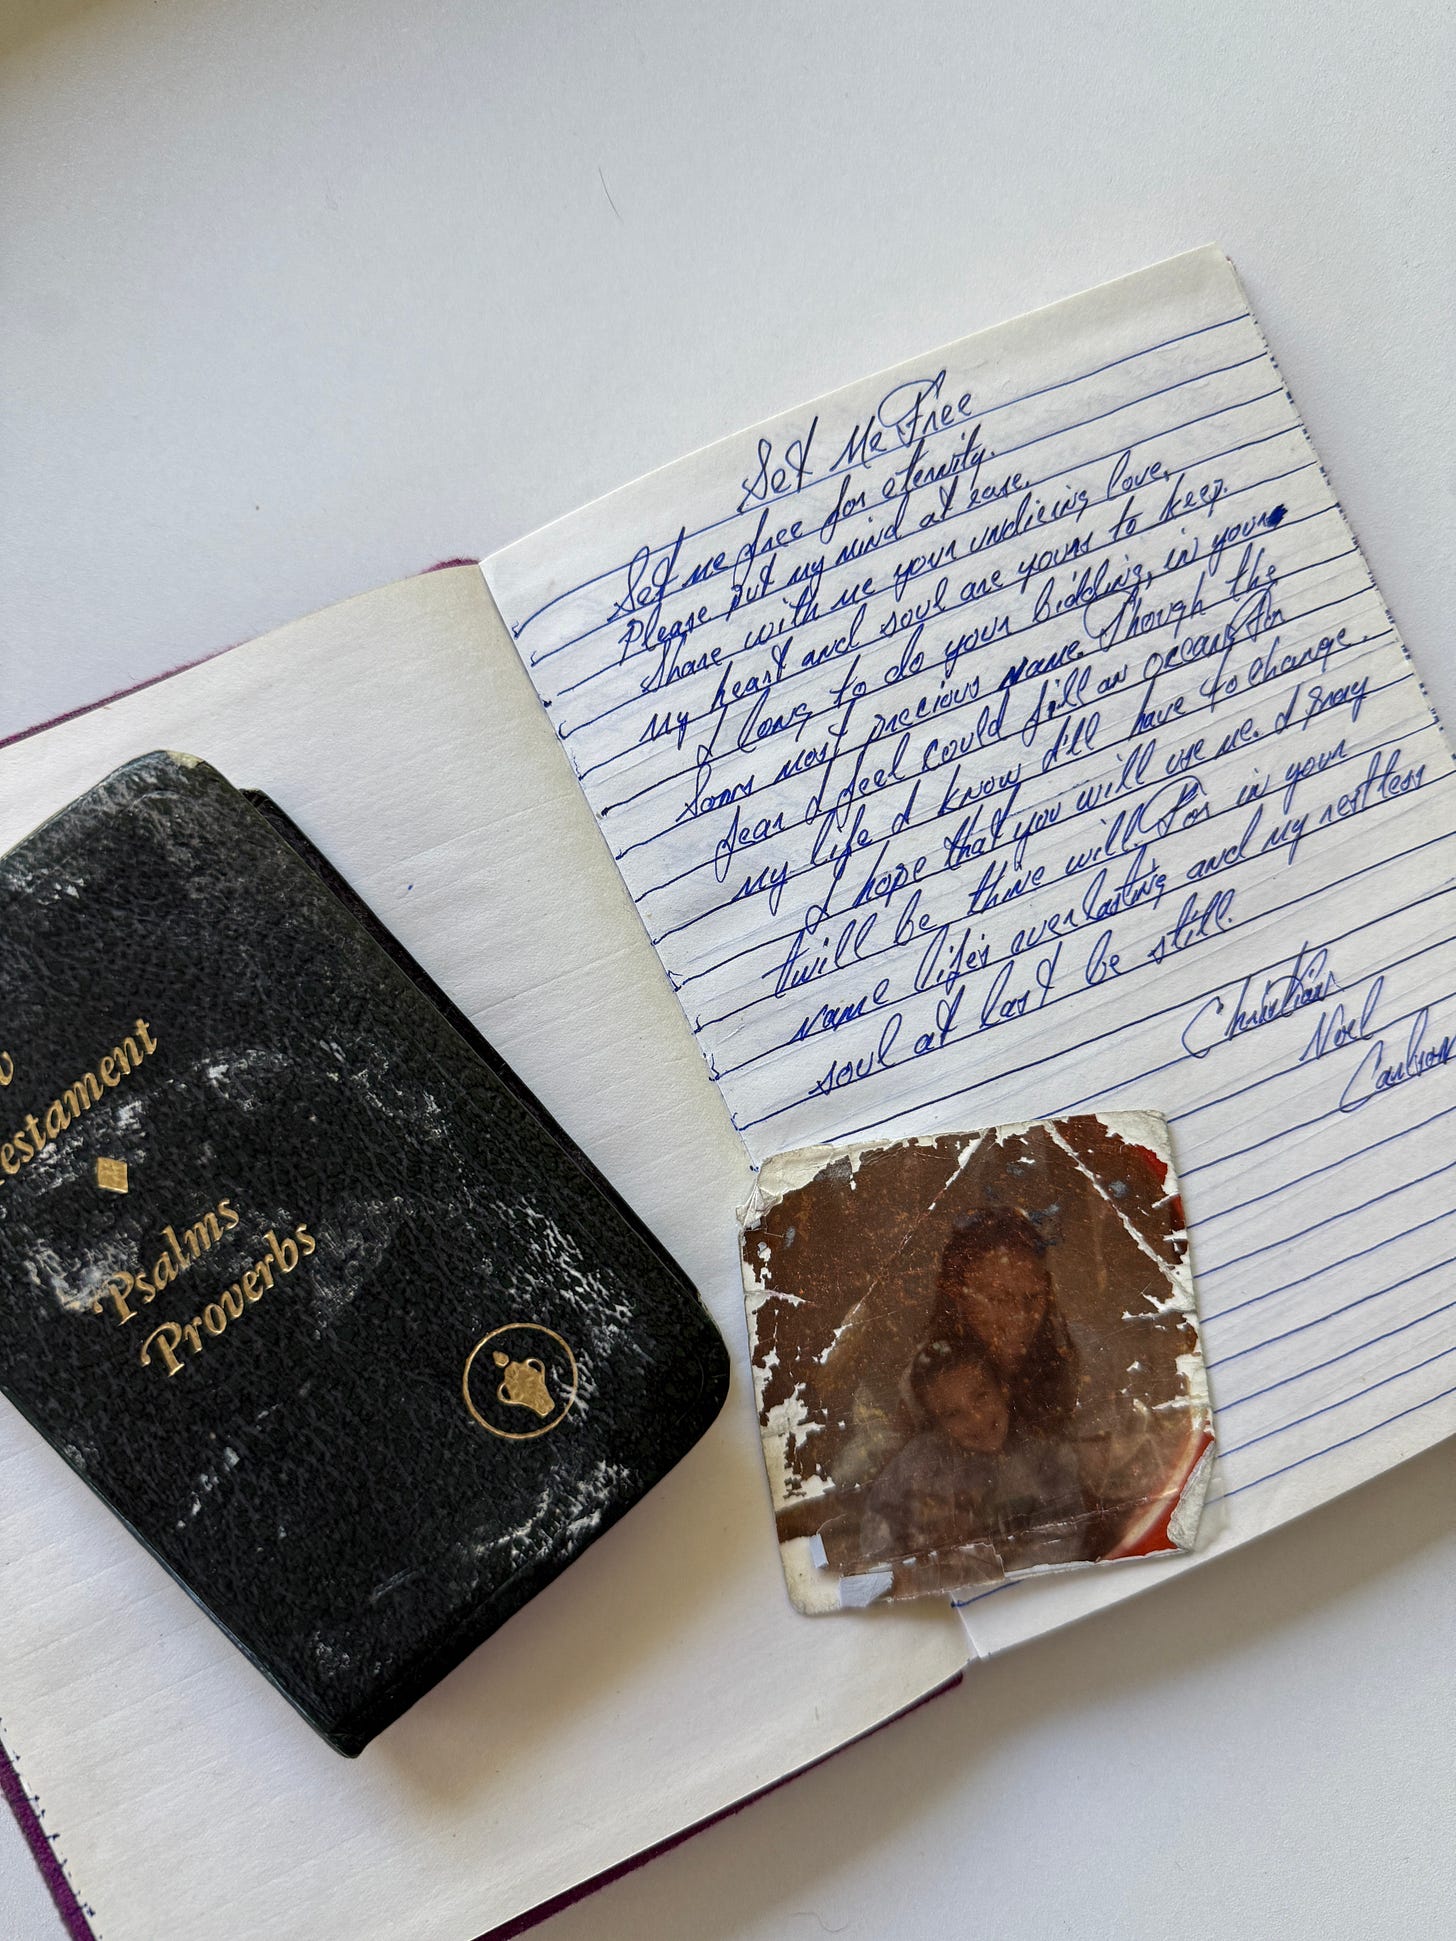 Set Me Free
Set me free for eternity.
Please put my mind at ease.
Share with me your undieing love,
my heart and soul are yours to keep.
I long to do your bidding, in your
Sons most precious name. Though the
fear I feel could fill an ocean, For
my life I know I'll have to change.
I hope that you will use me. I pray
twill be thine will. For in your
name life's everlasting and my restless
soul at last be still.
Christian
Noel
Carlson
estament
Psalms
Proverbs